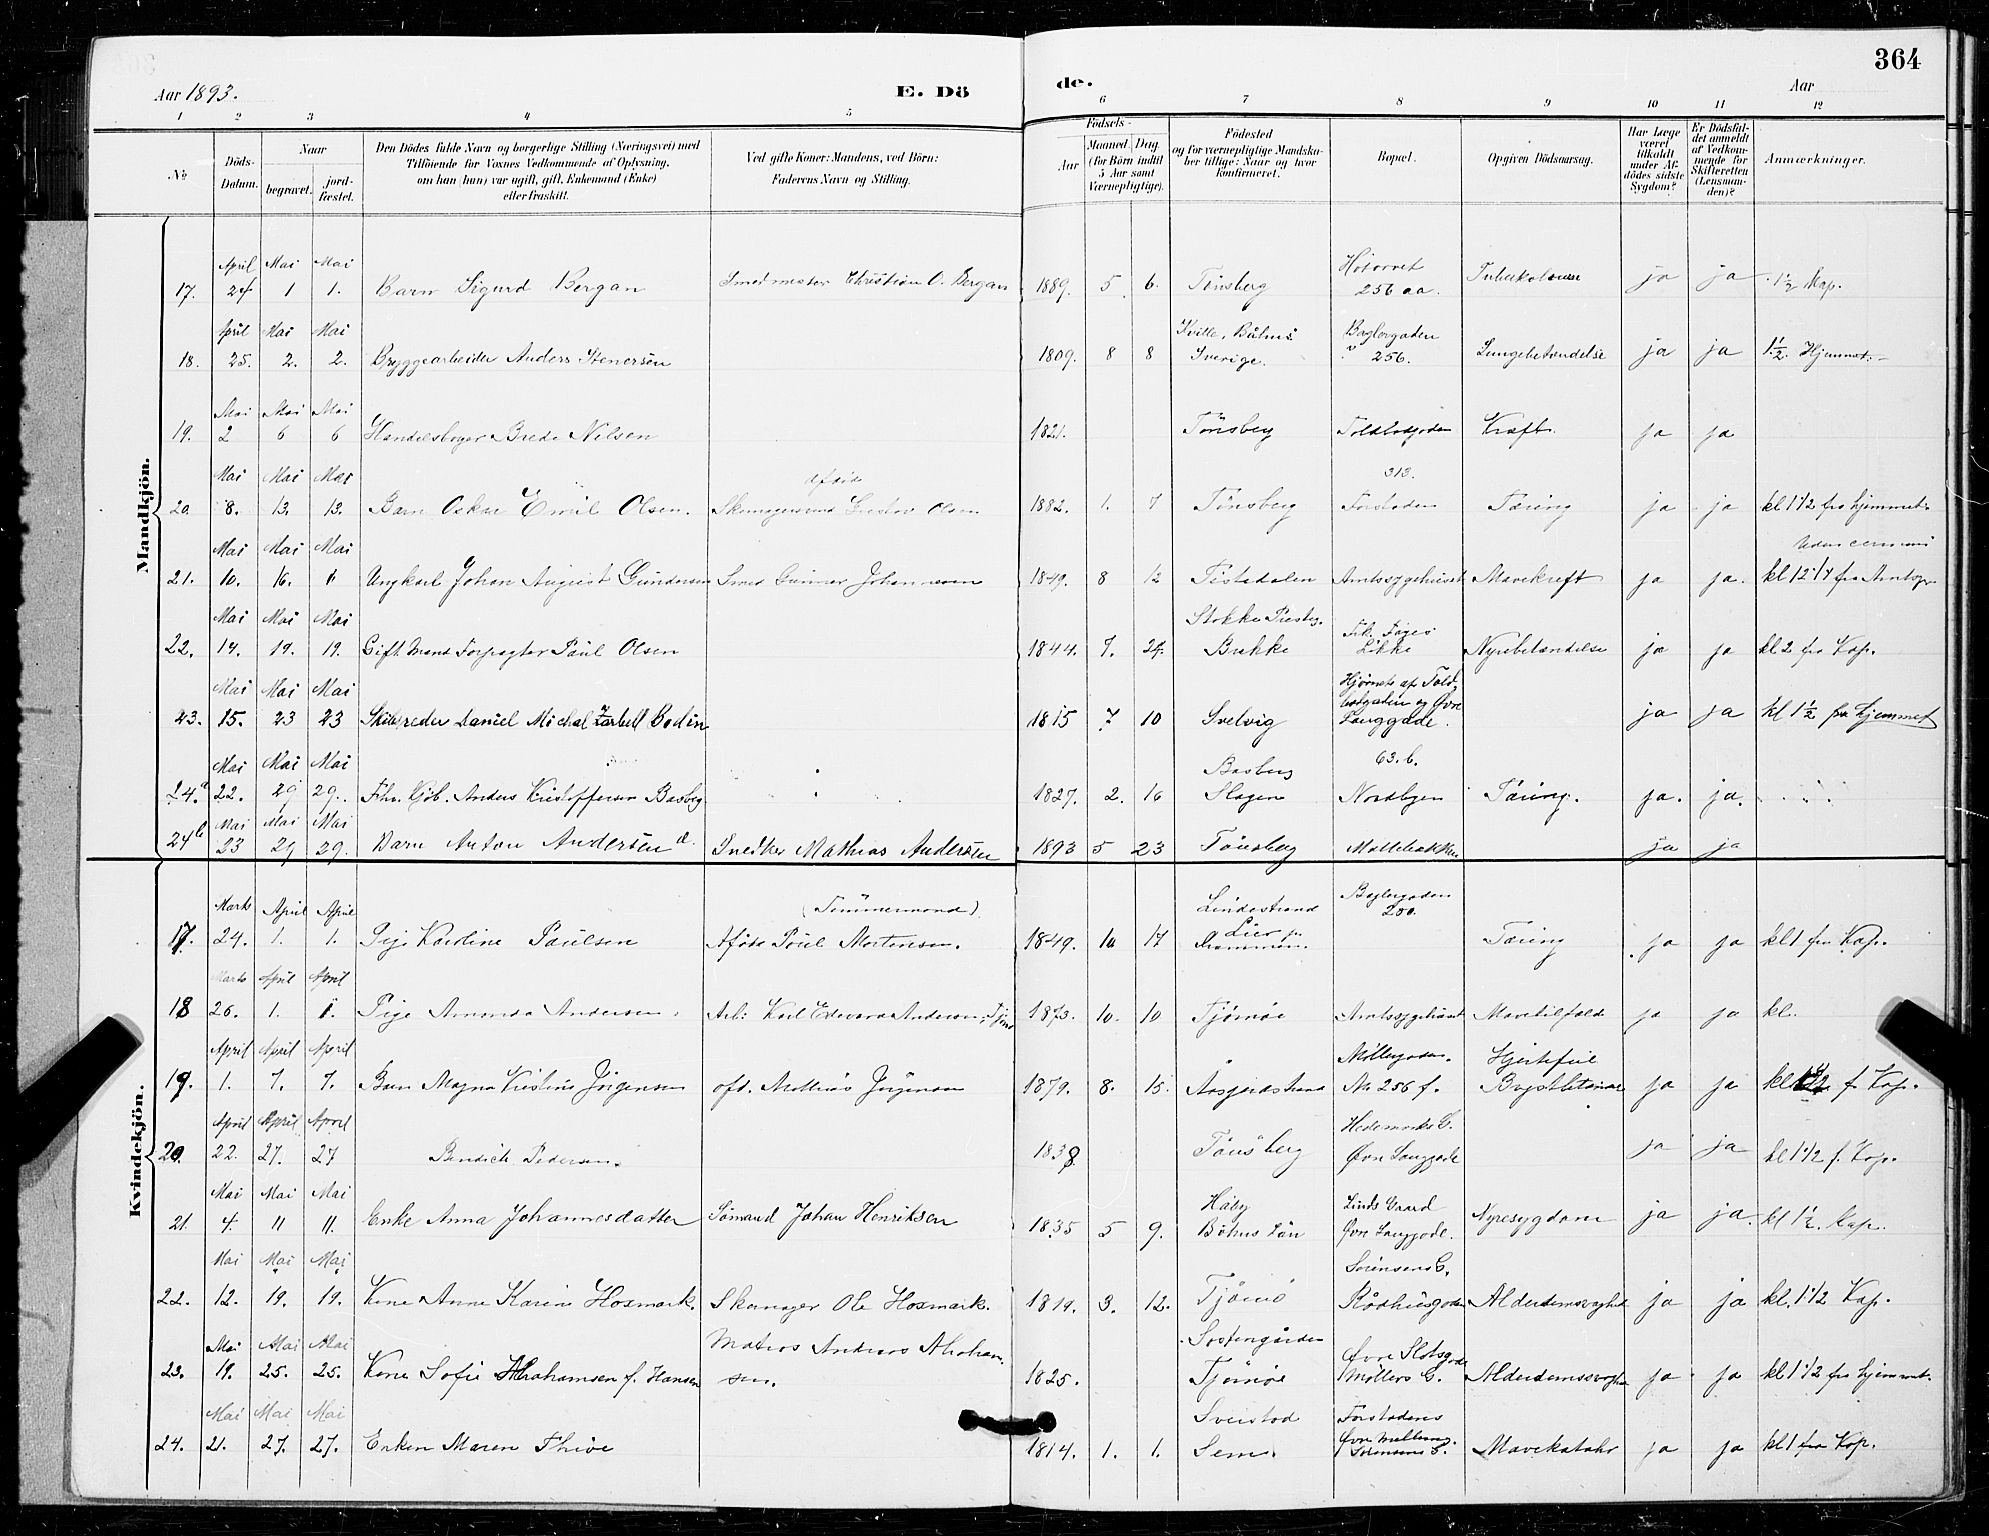 364
Aar 1893.
E. Dö
de.
Aar
1 2 3 4 5 6 7 8 9 10 11 12
No.
Döds-Datum.
Naar
begravet.
jord-fæstet.
Den Dödes fulde Navn og borgerlige Stilling (Næringsvei) med
Tilföiende for Voxnes Vedkommende af Oplysning,
om han (hun) var ugift, gift, Enkemand (Enke)
eller fraskilt.
Ved gifte Koner: Mandens, ved Börn:
Faderens Navn og Stilling.
Födsels-
Aar
Maaned. Dag.
(for Börn indtil
5 Aar samt
Værnepligtige).
Födested
og for værnepligtige Mandska-
ber tillige: Naar og hvor
konfirmeret.
Bopæl.
Opgiven Dödsaarsag.
Har Læge
været
tilkaldt
under Af-
dödes sidste
Sygdom?
Er Dödsfal-
det anmeldt
af Vedkom-
mende for
Skifteretten
(Lensman-
den)?
Anmærkninger.
Mandkjön.
17. April 24 Mai 1 Mai 1. Barn Sigurd Bergan Smedmester Christian O. Bergan 1889. 5 6. Tönsberg 256 aa. ja ja 1½ Kap.
18. April 25. Mai 2. Mai 2. Bryggearbeider Anders Stenersen 1809. 8 8 Sverige. Baglergaden 256. Lungebetændelse ja ja 1½. Hjemmet.
19. Mai 2 Mai 6 Mai 6 Brede Nilsen 1821. Tönsberg Kræft. ja ja
20. Mai 8. Mai 13. Mai 13. Barn Oskar Emil Olsen. Olsen 1882. 1. 7 Tönsberg 313. Forstaden Tæring ja ja kl 1½ fra hjemmet.
21. Mai 10. Mai 16. Mai Ungkarl Johan August Gundersen Smed Gunner Johannesen 1849. 8 12 Tistedalen Amtssygehuset Mavekreft ja ja. kl 12 1/4 fra
22. Mai 14. Mai 19. Mai 19. Gift Mand Forpagter Paul Olsen 1844. 7. 24. Stokke Bakke Nyrebetændelse ja ja kl 2 fra Kap.
23. Mai 15. Mai 23 Mai 23 Skibsreder Daniel Michal Bodin 1815 7 10 Svelvig Hjørnet af Told-
bodgaden og Øvre
Langgade. ja ja kl 1½ fra hjemmet
24.a Mai 22. Mai 29 Mai 29. Anders Kristoffersen Basberg 1827. 2. 16 Basberg Slagen 63.b. Nordbyen Tæring. ja. ja.
24b Mai 23 Mai 29 Mai 29. Barn Anton Andersen d. Snedker Mathias Andersen 1893 5 23 Tönsberg Møllebakken ja ja
Kvindekjön.
17. Marts 24. April 1. April 1. Pige Karoline Paulsen (Tømmermand) Afdøde Poul Mortensen. 1849. 10 17 Lier pr. Drammen. Baglergaden 250. Tæring ja ja kl 1 fra Kap.
18 Marts 26. April 1. April 1. Pige Amanda Andersen. Arb: Karl Edvard Andersen, 1873. 10. 10 Tjømöe Amtssygehuset Mavetilfælde ja ja kl.
19. April 1. April 7. April 7. Barn Magna Kristine Jörgensen afd. Mathias Jörgensen 1879. 8. 15. Aasgaardstrand Møllegaden. No 256 f. Hjertefeil ja ja kl f. Kap.
20. April 22. April 27. April 27 Pedersen. 1838 Tönsberg Hedemarks G. Øvre Langgade ja ja kl 1½ f. Kap.
21. Mai 4. Mai 11 Mai 11. Enke Anna Johannesdatter Sömand Johan Henriksen 1835 5 9. Håby Böhus Län Linds Gaard Øvre Langgade. Nyresygdom ja ja. kl 1½. Kap.
22. Mai 12. Mai 19. Mai 19. Kone Anne Karine Hosmark. Skomager Ole Hosmark. 1819. 3. 12. Tjømö Sörensens G. Rådhusgaden Alderdomssvaghed ja ja kl. 1½ Kap.
23. Mai 19. Mai 25. Mai 25. Kone Sofie Abrahamsen f. Hansen Matros Andreas Abraham-
sen. 1825. Tjømöe Øvre Slotsgade Möllers G. Alderdomssvaghed ja ja kl 1½ fra hjemmet.
24. Mai 21. Mai 27. Mai 27. Enken Maren Thive 1814. 1. 1. Sem. Sörensens G. Mavekatahr ja ja kl 1 fra Kap.